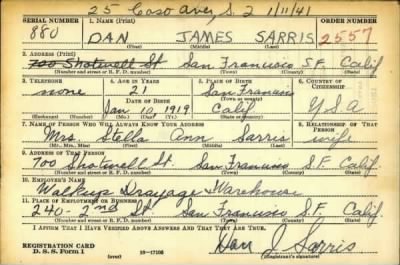 25 Caso Aver, S. 2 1/11/41
SERIAL NUMBER 1. NAME (Print) ORDER NUMBER
880 DAN JAMES SARRIS 2557
(First) (Middle) (Last)
2. ADDRESS (Print)
700 Shotwell St San Francisco S.F. Calif
(Number and street or R. F. D. number) (Town) (County) (State)
3. TELEPHONE 4. AGE IN YEARS 5. PLACE OF BIRTH 6. COUNTRY OF CITIZENSHIP
none 21 San Francisco
DATE OF BIRTH (Town or county)
Jan 10 1919 Calif U S A
(Mo.) (Day) (Yr.) (State or country)
7. NAME OF PERSON WHO WILL ALWAYS KNOW YOUR ADDRESS 8. RELATIONSHIP OF THAT PERSON
Mrs. Stella Ann Sarris wife
(Mr., Mrs., Miss) (First) (Middle) (Last)
9. ADDRESS OF THAT PERSON
700 Shotwell St. San Francisco S.F. Calif.
(Number and street or R. F. D. number) (Town) (County) (State)
10. EMPLOYER'S NAME
Walkup Drayage Warehouse
11. PLACE OF EMPLOYMENT OR BUSINESS
240 - 2nd St San Francisco S.F. Calif.
(Number and street or R. F. D. number) (Town) (County) (State)
I AFFIRM THAT I HAVE VERIFIED ABOVE ANSWERS AND THAT THEY ARE TRUE.
REGISTRATION CARD
D. S. S. Form 1 16-17105 Dan J Sarris
(Registrant's signature)